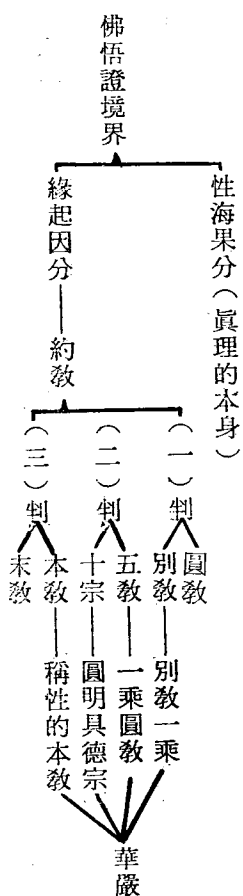 佛悟證境界
性海果分（眞理的本身）
緣起因分
約敎
（一）判
圓敎
別敎
別敎一乘
（二）判
五敎
一乘圓敎
十宗
圓明具德宗
（三）判
本敎
稱性的本敎
末敎
華嚴